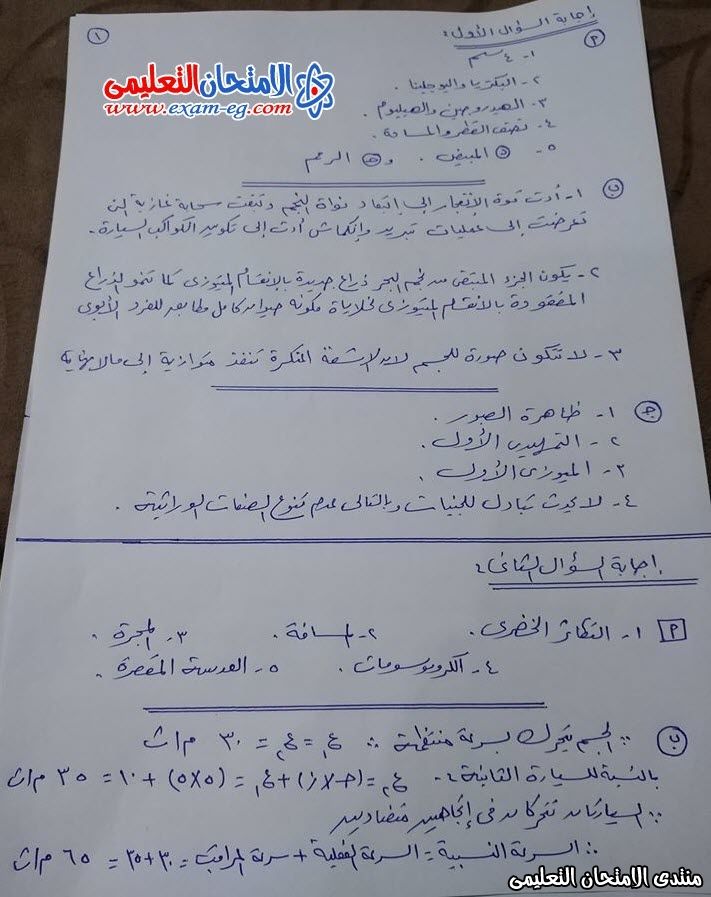 إجابة السؤال الأول:
١
الامتحان التعليمى
www.exam-eg.com
أ
١- ٤ سم
٢- البكتريا واليوجلينا.
٣- الهيدروجين والهيليوم.
٤- نصف القطر والمسافة.
٥- د المبيض. و هـ الرحم
ب ١- أدت قوة الإنفجار إلى إبتعاد نواة النجم وتبقت سحابة غازية التى
تعرضت إلى عمليات تبريد وإنكماش أدت إلى تكوين الكواكب السيارة.
٢- يكون الجزء المتبقى من نجم البحر ذراع جديدة بالانقسام الميتوزى كما تنمو الذراع
المفقودة بالانقسام الميتوزى لخلاياه مكونه حيوان كامل مطابق للفرد الأبوى
٣- لا تتكون صورة للجسم لأن الأشعة المنكسرة تنفذ متوازية إلى مالانهاية
ج ١- ظاهرة العبور.
٢- التمهيدى الأول.
٣- الميوزى الأول.
٤- لا يحدث تبادل للجينات وبالتالى عدم تنوع الصفات الوراثية.
إجابة السؤال الثانى:
أ ١- التكاثر الخضرى. ٢- المسافة. ٣- المجرة.
٤- الكروموسومات. ٥- العدسة المقعرة.
ب ∵ الجسم يتحرك بسرعة منتظمة ∴ ع١ = ع٢ = ٣٠ م/ث
بالنسبة للسيارة الثانية :- ع٢ = (جـ × ز) + ع١ = (٥×٥) + ١٠ = ٣٥ م/ث
∵ السيارتان تتحركان فى إتجاهين متضادين
∴ السرعة النسبية = السرعة الفعلية + سرعة المراقب = ٣٠+٣٥ = ٦٥ م/ث
منتدى الامتحان التعليمى